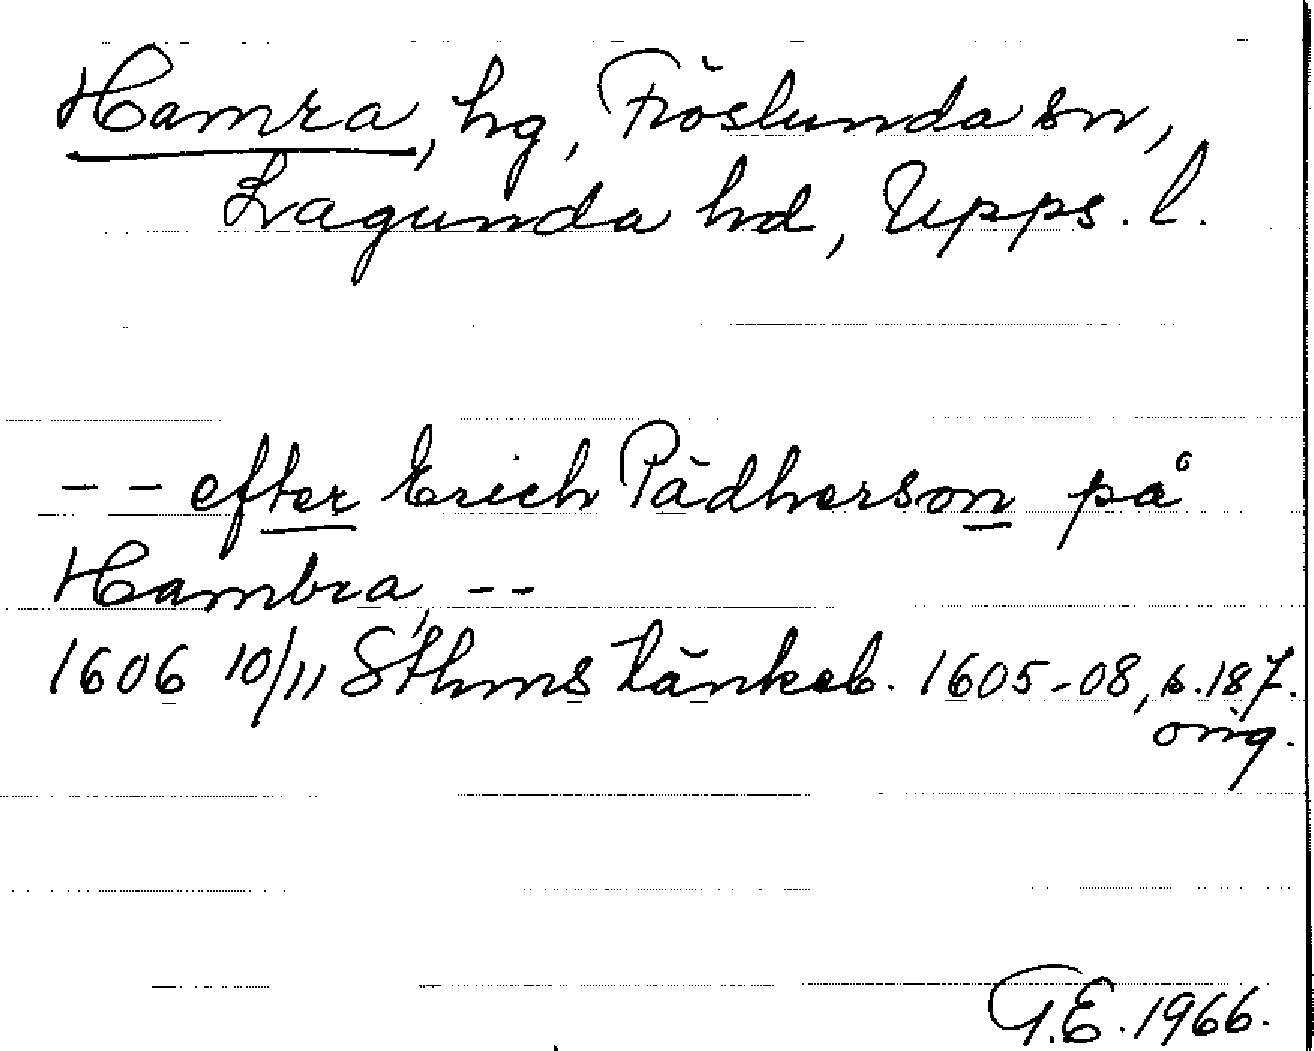 Hamra, hg, Fröslunda sn,
Lagunda hd, Upps. l.
-- efter Erich Pädherson på
Hambra, --
1606 10/11 Sthms tänkeb. 1605-08, s. 187.
orig.
G.E. 1966.